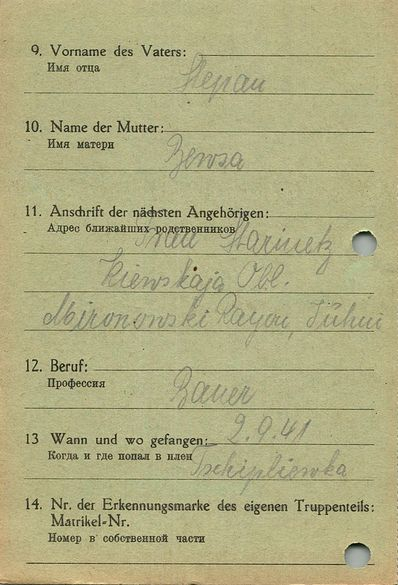 9. Vorname des Vaters:
Имя отца
Stepan
10. Name der Mutter:
Имя матери
11. Anschrift der nächsten Angehörigen:
Адрес ближайших родственников
Starinetz
Kiewskaja Obl.
Mironowski Rayon,
12. Beruf:
Профессия
Bauer
13 Wann und wo gefangen: 2.9.41
Когда и где попал в плен
Tschipliewka
14. Nr. der Erkennungsmarke des eigenen Truppenteils:
Matrikel-Nr.
Номер в собственной части